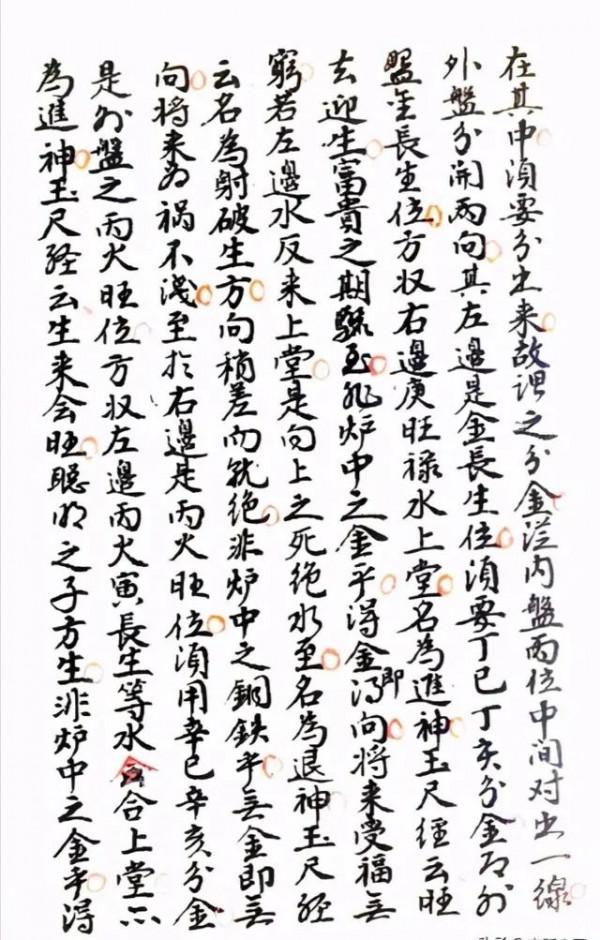 在其中須要分出来故谓之分金從内盤兩位中间对出一線
外盤分開兩向其左邊是金長生位須要丁巳丁亥分金乃外
盤金長生位方収右邊庚旺禄水上堂名為進神玉尺經云旺
去迎生富貴之期驟至非炉中之金乎得金即得向将来受福無
窮若左邊水反来上堂是向上之死绝水至名為退神玉尺經
云名為射破生方向稍差而就绝非炉中之銅鉄乎無金即無
向将来為祸不浅至於右邊是丙火旺位須用辛巳辛亥分金
是外盤之丙火旺位方収左邊丙火寅長生等水合上堂亦
為進神玉尺經云生来会旺聪明之子方生非炉中之金乎得